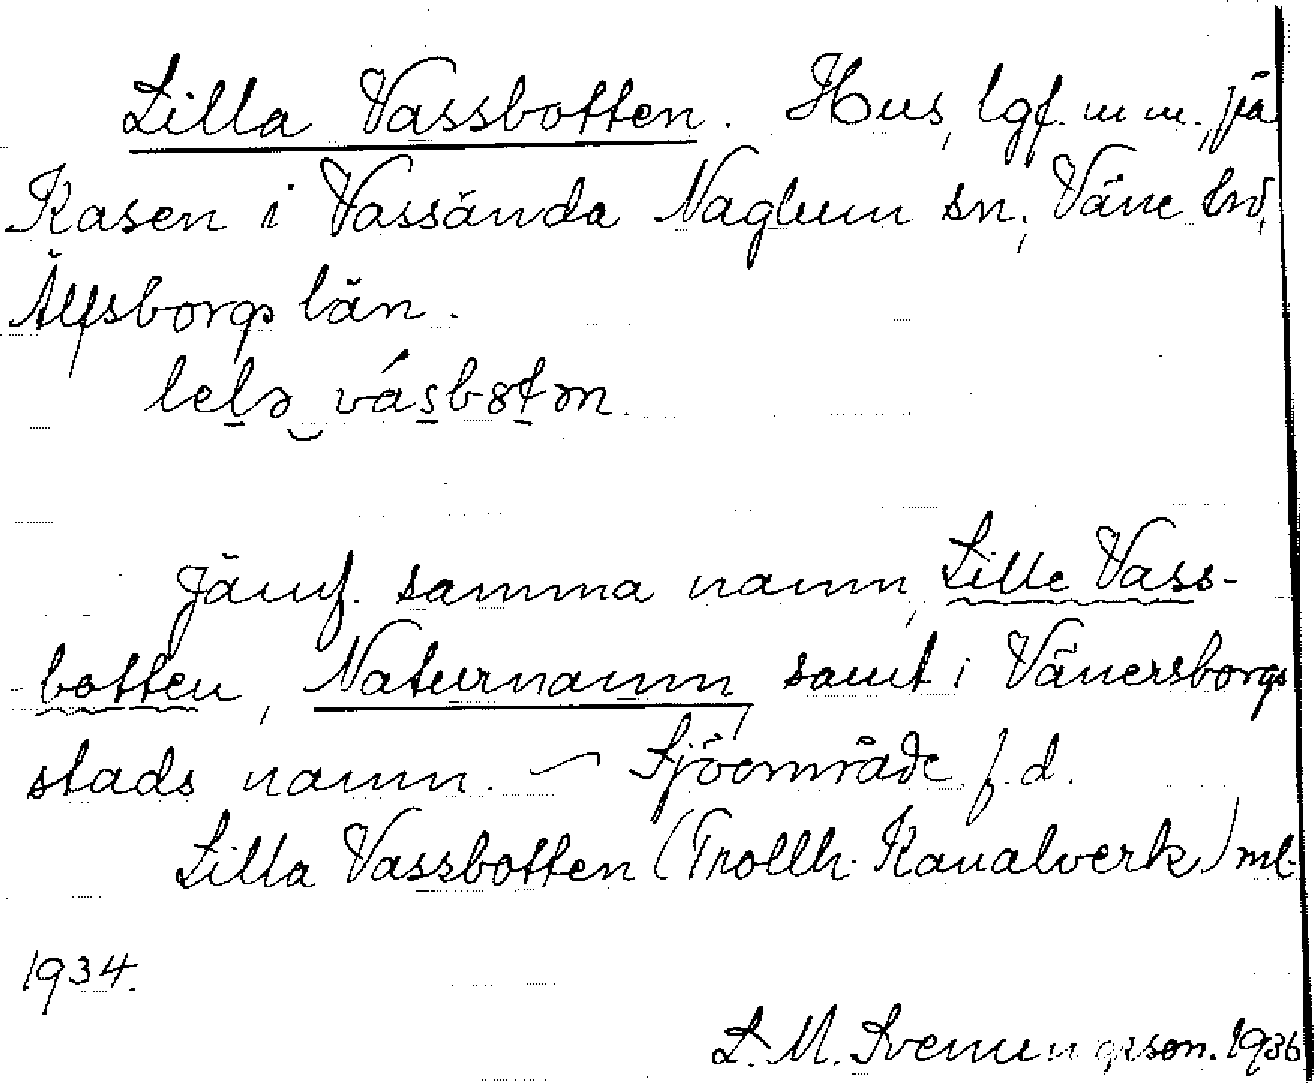 Lilla Vassbotten. Hus, lgf. m m., på
Kasen i Vassända Naglum sn, Väne hd,
Älfsborgs län.
lelə vásbotən
Jämf. samma namn, Lille Vass-
botten, Naturnamn, samt i Vänersborgs
stads namn. – Sjöområde f.d.
Lilla Vassbotten (Trollh. Kanalverk) mb
1934.